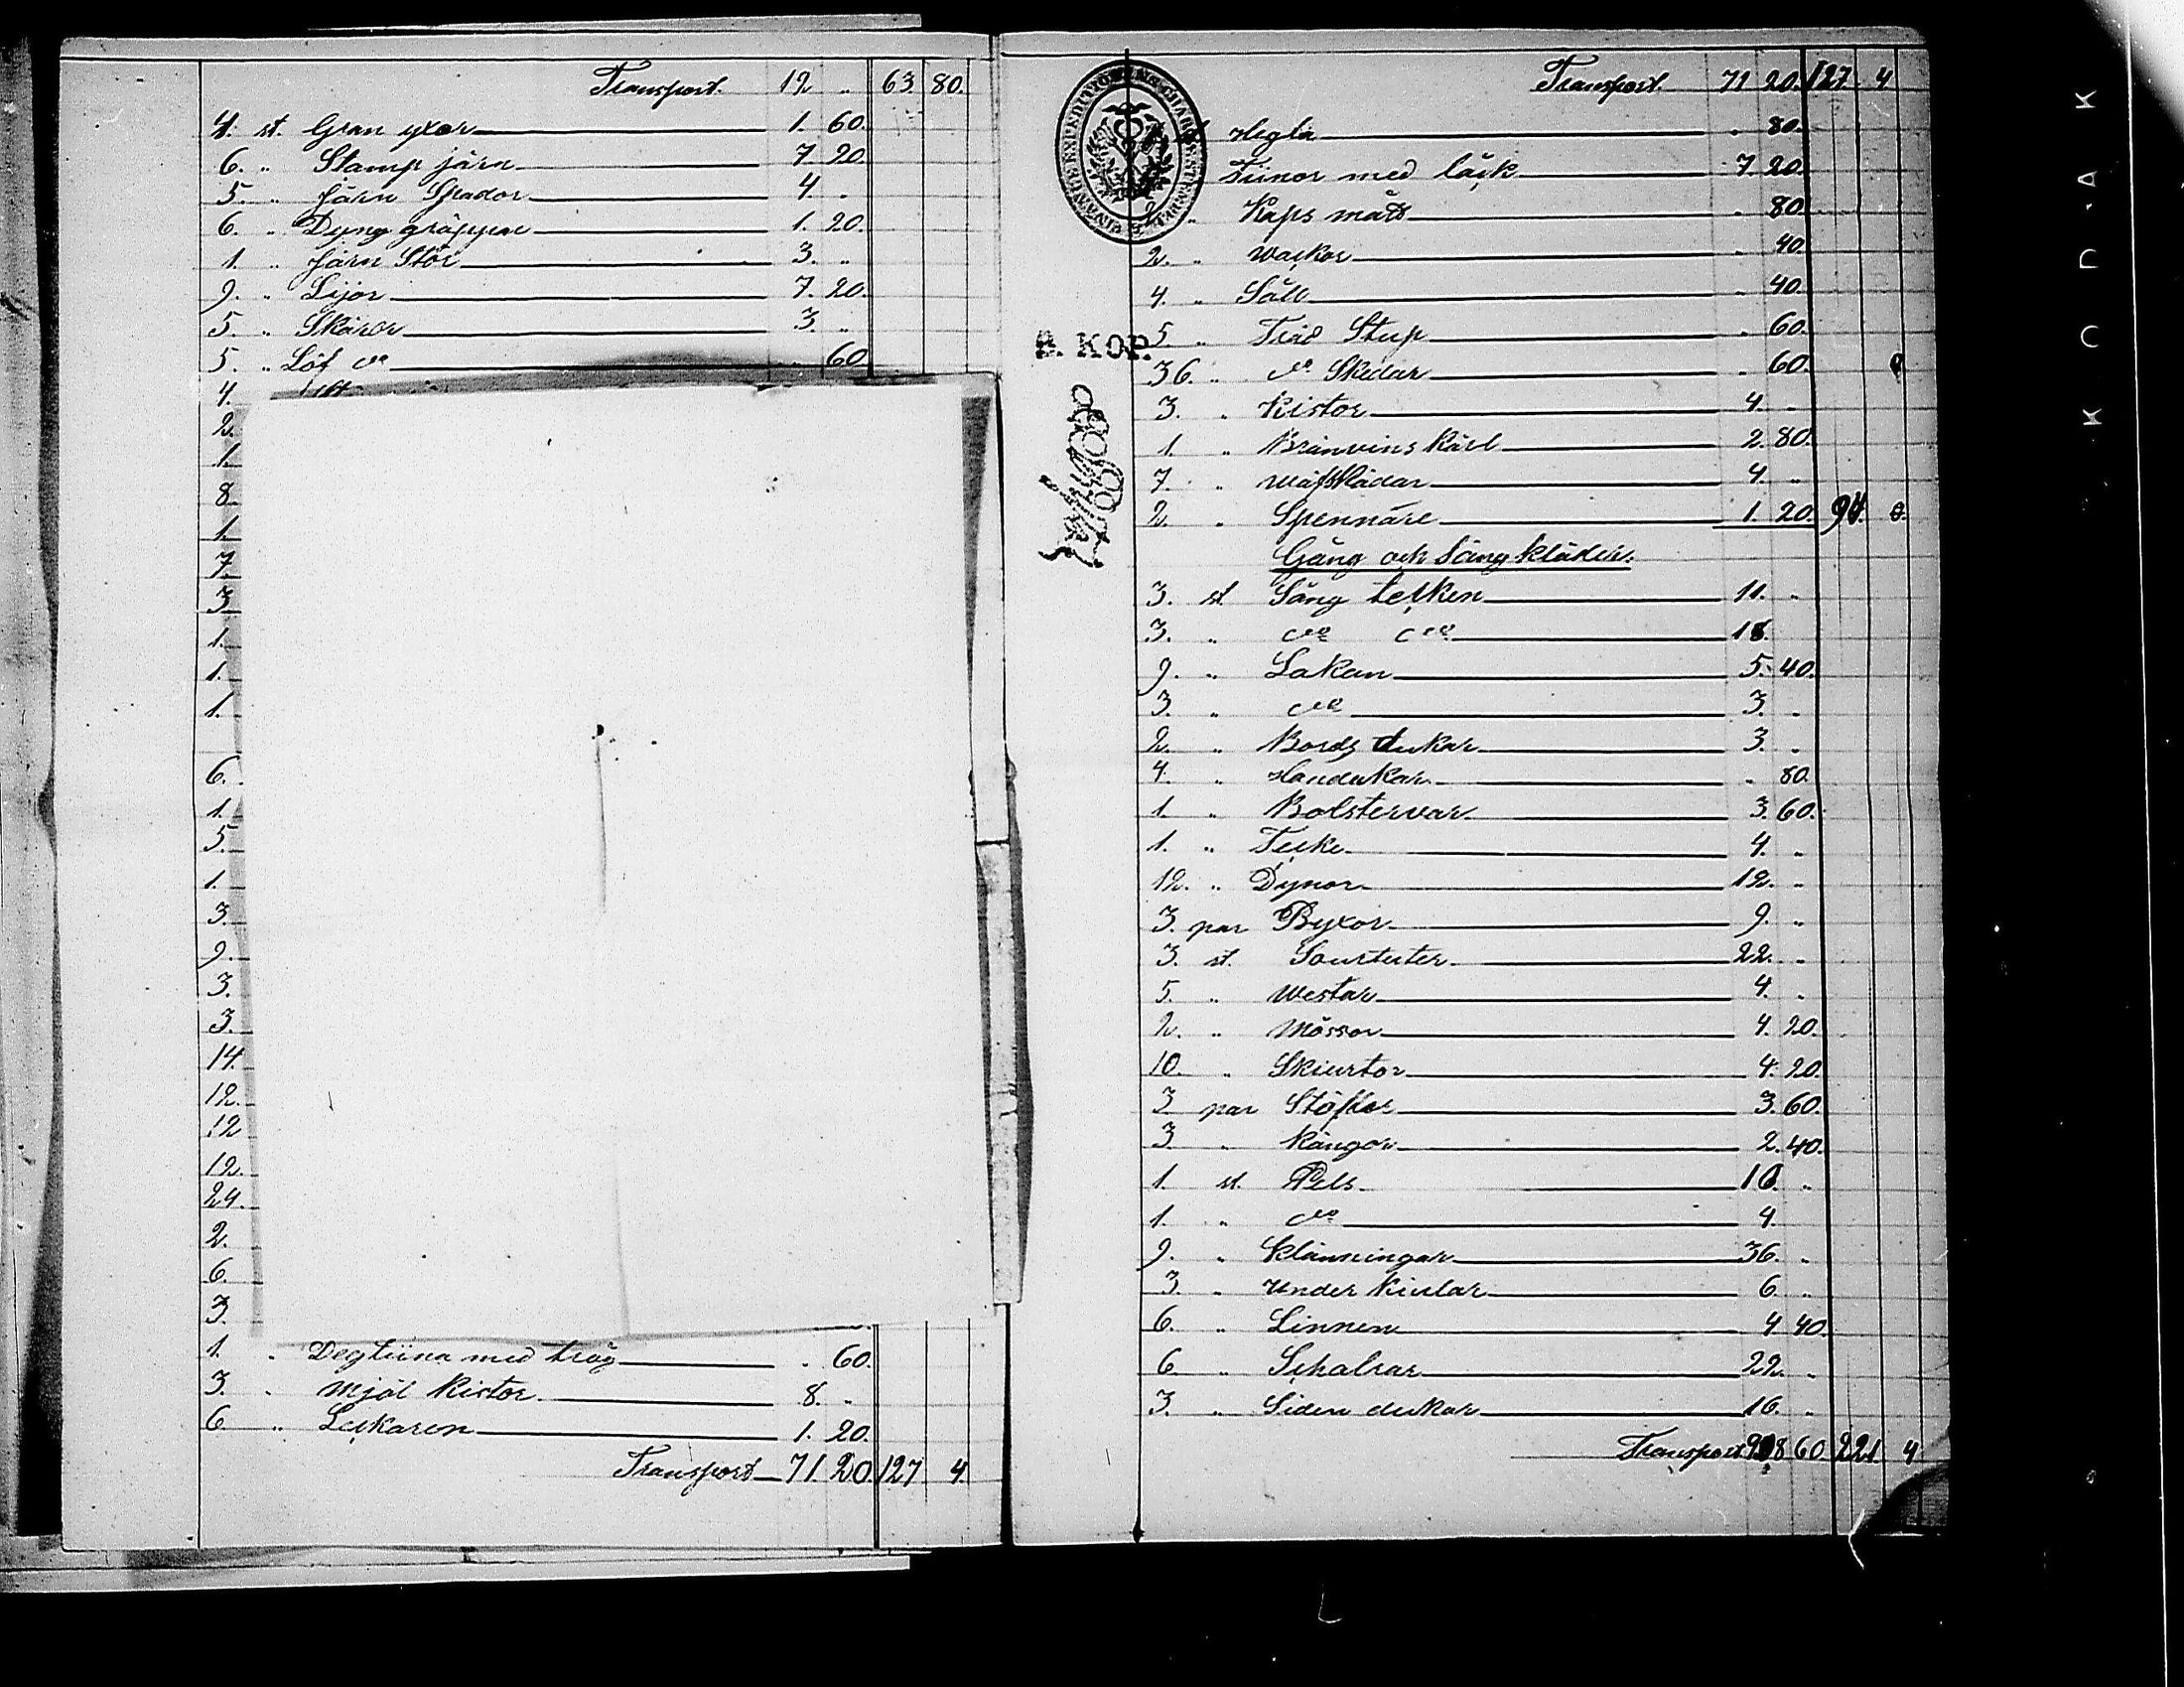 Transport. 12 „ 63. 80.
4. st. Gran yxor 1. 60.
6. „ Stamp järn 7. 20
5. „ Järn Spador 4. „
6. „ Dyng gräppar 1. 20.
1. „ Järn Stör 3. „
9. „ Lijor 7. 20.
5. „ Skäror 3. „
5. „ Löf do „ 60
4.
2.
1.
8.
1.
7.
3.
1.
1.
1.
6.
1.
5.
1.
3.
9.
3.
3.
14.
12.
12
12.
24.
2.
6.
3.
1. „ Degtiina med tråg „ 60.
3. „ Mjöl Kistor 8. „
6. „ Leskaren 1. 20.
Transport 71. 20. 127 4.
Transport. 71 20. 127. 4
Hegla „ 80.
Tiinor med läsk 7. 20.
„ Kaps mått „ 80.
2. „ Waskor „ 40.
4. „ Såll „ 40.
5. „ Träd Stup „ 60.
36. „ do Skedar „ 60.
3. „ Kistor 4. „
1. „ Bränvins Kärl 2. 80.
7. „ Wäfskädar 4. „
2. „ Spennäre 1. 20. 94. 0.
Gång och Säng kläder.
3. st. Säng tecken 11. „
3. „ do do 18.
9. „ Lakan 5. 40.
3. „ do 3. „
2. „ Bords dukar 3. „
4. „ Handukar „ 80.
1. „ Bolstervar 3. 60.
1. „ Tecke 4. „
12. „ Dynor 12. „
3. par Byxor 9. „
3. st. Sourtuter 22. „
5. „ Westar 4. „
2. „ Mössor 4. 20.
10. „ Skiurtor 4. 20.
3 par Stöflor 3. 60.
3 „ Kängor 2. 40.
1. st. Pels 10. „
1. „ do 4.
9. „ Klänningar 36. „
3. „ Under Kiolar 6. „
6. „ Linnen 4 40.
6. „ Schalrar 22. „
3. „ Siden dukar 16. „
Transport 228 60. 221 4
B. KOP.
KODAK